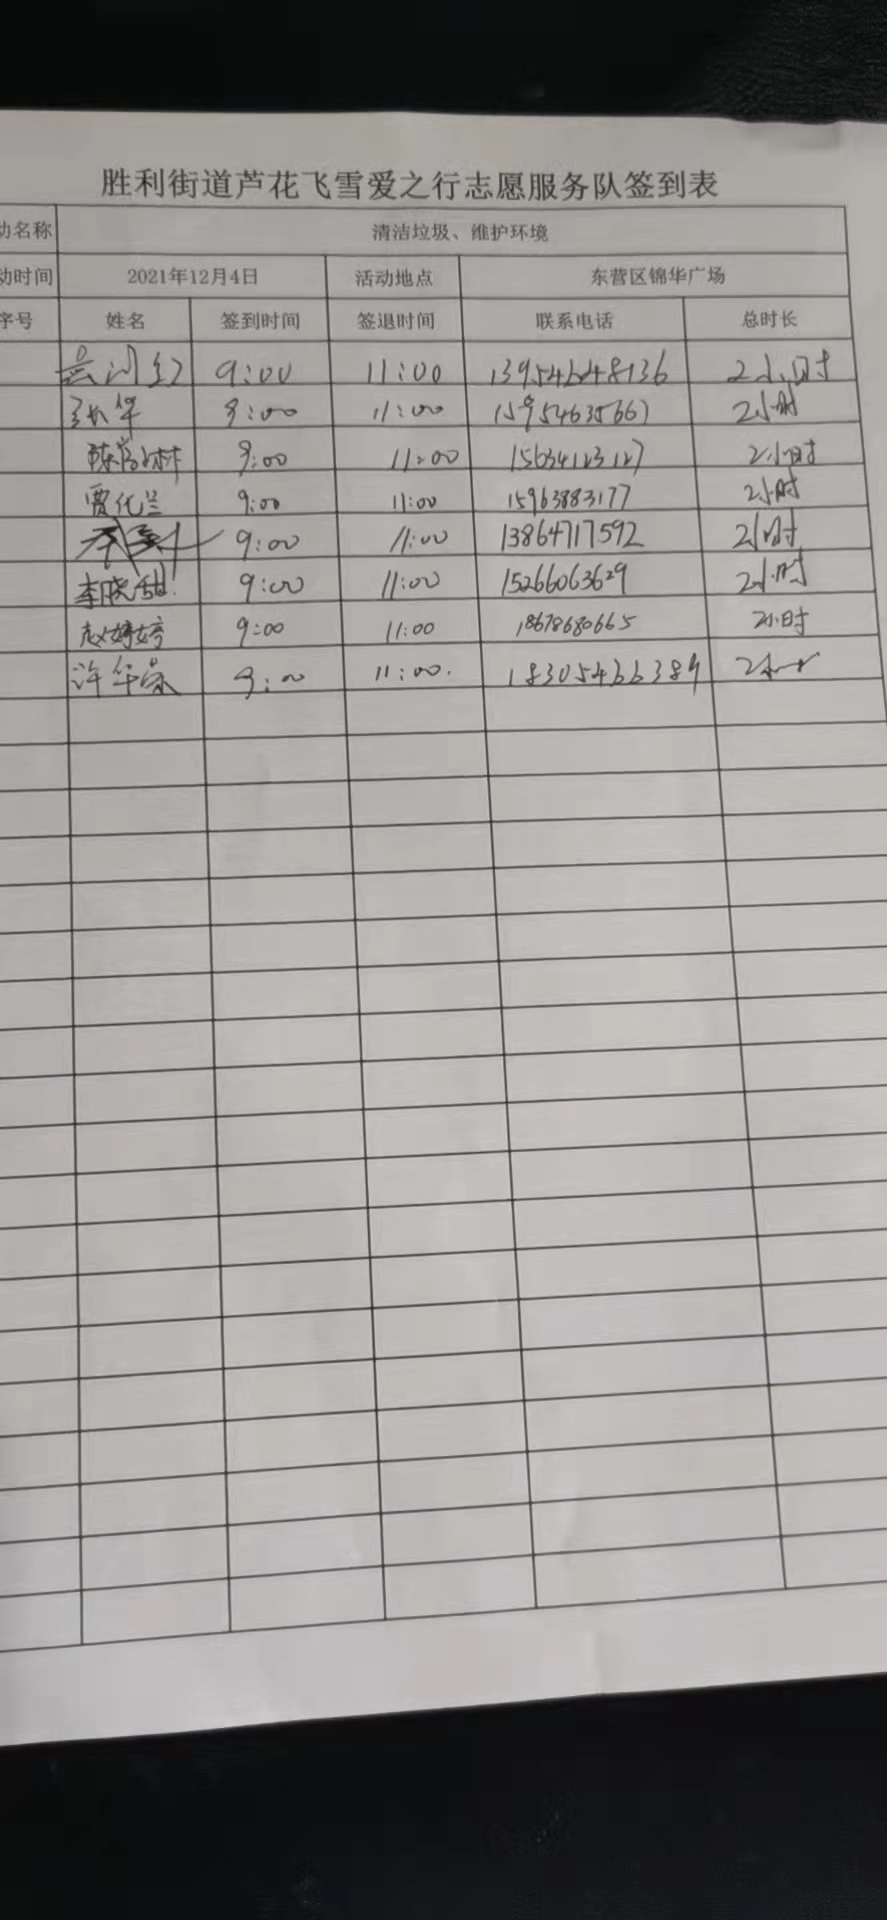 胜利街道芦花飞雪爱之行志愿服务队签到表
动名称 清洁垃圾、维护环境
动时间 2021年12月4日 活动地点 东营区锦华广场
序号 姓名 签到时间 签退时间 联系电话 总时长
9:00 11:00 13954648136 2小时
张华 9:00 11:00 15954635667 2小时
9:00 11:00 15634123127 2小时
贾化兰 9:00 11:00 15963883177 2小时
9:00 11:00 13864717592 2小时
李晓甜 9:00 11:00 15266063629 2小时
赵婷婷 9:00 11:00 18678680665 2小时
许华荣 9:00 11:00. 18305466389 2小时